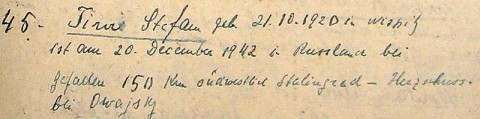 45. Stefan geb 21.10.1920 in
ist am 20. December 1942 in Russland bei
gefallen 150 Km südwestlich Stalingrad – Herzschuss.
bei